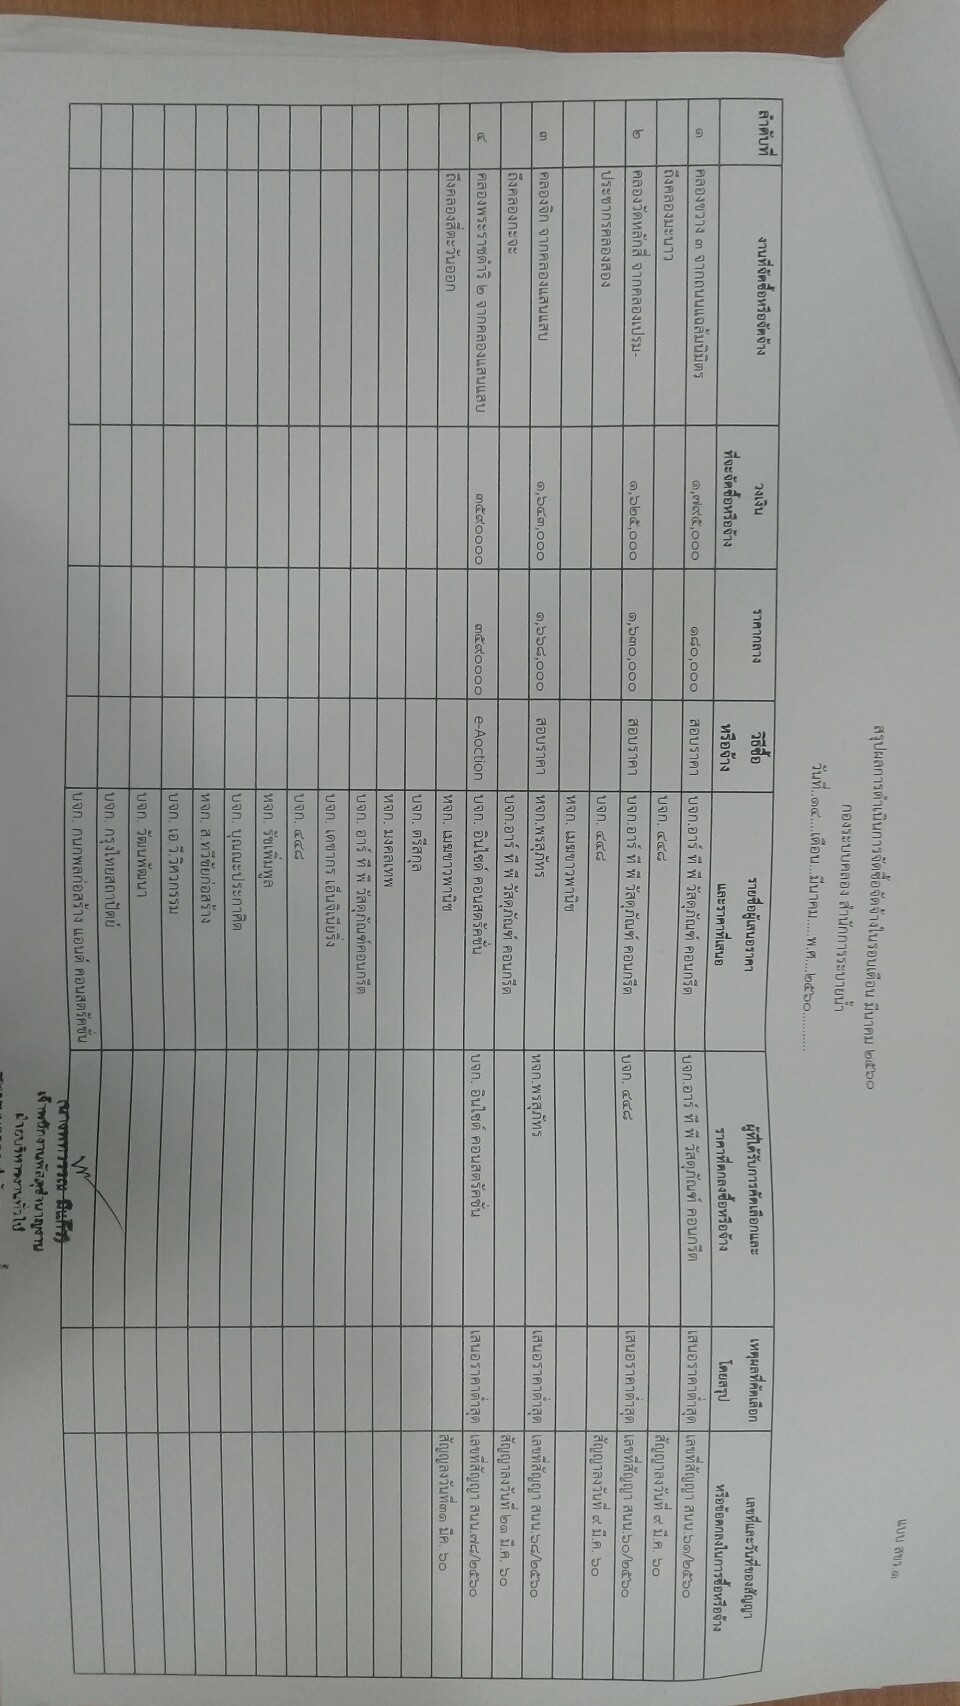 แบบ สขร ๑
สรุปผลการดำเนินการจัดซื้อจัดจ้างในรอบเดือน มีนาคม ๒๕๖๐
กองระบบคลอง สำนักการระบายน้ำ
วันที่..๑๔....เดือน...มีนาคม.....พ.ศ....๒๕๖๐...........
ลำดับที่ งานที่จัดซื้อหรือจัดจ้าง วงเงิน ราคากลาง วิธีซื้อ รายชื่อผู้เสนอราคา ผู้ที่ได้รับการคัดเลือกและ เหตุผลที่คัดเลือก เลขที่และวันที่ของสัญญา
ที่จะจัดซื้อหรือจ้าง หรือจ้าง และราคาที่เสนอ ราคาที่ตกลงซื้อหรือจ้าง โดยสรุป หรือข้อตกลงในการซื้อหรือจ้าง
๑ คลองขวาง ๓ จากถนนแฉล้มนิมิตร ๑,๗๙๕,๐๐๐ ๑๘๐,๐๐๐ สอบราคา บจก.อาร์ ที พี วัสดุภัณฑ์ คอนกรีต บจก.อาร์ ที พี วัสดุภัณฑ์ คอนกรีต เสนอราคาต่ำสุด เลขที่สัญญา สนน.๖๑/๒๕๖๐
ถึงคลองมะนาว บจก. ๔๔๘ สัญญาลงวันที่ ๙ มี.ค. ๖๐
๒ คลองวัดหลักสี่ จากคลองเปรม- ๑,๖๒๕,๐๐๐ ๑,๖๓๐,๐๐๐ สอบราคา บจก.อาร์ ที พี วัสดุภัณฑ์ คอนกรีต บจก. ๔๔๘ เสนอราคาต่ำสุด เลขที่สัญญา สนน.๖๐/๒๕๖๐
ประชากรคลองสอง บจก. ๔๔๘ สัญญาลงวันที่ ๙ มี.ค. ๖๐
หจก. เมฆขาวพานิช
๓ คลองจิก จากคลองแสนแสบ ๑,๖๔๓,๐๐๐ ๑,๖๖๘,๐๐๐ สอบราคา หจก.พรสุภัทร หจก.พรสุภัทร เสนอราคาต่ำสุด เลขที่สัญญา สนน.๖๘/๒๕๖๐
ถึงคลองกะจะ บจก.อาร์ ที พี วัสดุภัณฑ์ คอนกรีต สัญญาลงวันที่ ๒๑ มี.ค. ๖๐
๔ คลองพระราชดำริ ๒ จากคลองแสนแสบ ๓๕๙๐๐๐๐ ๓๕๙๐๐๐๐ e-Aoction บจก. อินไซด์ คอนสตรัคชั่น บจก. อินไซด์ คอนสตรัคชั่น เสนอราคาต่ำสุด เลขที่สัญญา สนน.๗๘/๒๕๖๐
ถึงคลองสี่ตะวันออก หจก. เมฆขาวพานิช สัญญลงวันที่๓๑ มีค. ๖๐
บจก. ตรีสกุล
หจก. มงคลเทพ
บจก. อาร์ ที พี วัสดุภัณฑ์คอนกรีต
บจก. เดชากร เอ็นจิเนียริ่ง
บจก. ๔๔๘
หจก. รัชเพิ่มพูล
บจก. บุณณะประกาศิต
หจก. ส.ทวีชัยก่อสร้าง
บจก. เอ วี.วิศวกรรม
บจก. วัฒนพัฒนา
บจก. กรุงไทยสถาปัตย์
บจก. กนกพลก่อสร้าง แอนด์ คอนสตรัคชั่น
เจ้าพนักงานพัสดุชำนาญงาน
ฝ่ายบริหารงานทั่วไป